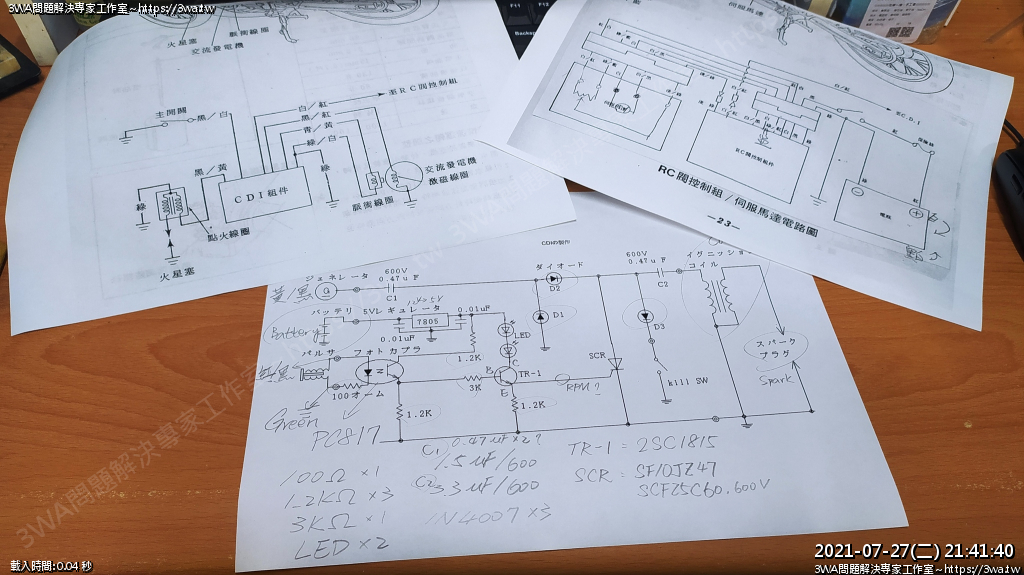 3WA問題解決專家工作室~https://3wa.tw
火星塞
脈衝線圈
交流發電機
伺服馬達
至RC閥控制組
白/紅
黑/紅
青/黃
綠/白
主開關
黑/白
黑/黃
綠
CDI組件
綠
交流發電機
激磁線圈
脈衝線圈
點火線圈
火星塞
至CDI
RC閥控制組件
電瓶
RC閥控制組/伺服馬達電路圖
—23—
CDIの製作
ジェネレータ
600V
0.47uF
C1
ダイオード
D2
600V
0.47uF
C2
イグニッショ
コイル
黃/黑
G
バッテリ
5Vレギュレータ
0.01uF
Battery
7805
0.01uF
LED
D1
D3
パルサ
フォトカプラ
1.2K
SCR
スパーク
プラグ
Spark
100オーム
3K
B
C
E
TR-1
RPM?
kill SW
1.2K
1.2K
Green
PC817
100Ω ×1
1.2KΩ ×3
3KΩ ×1
LED ×2
C1 0.47uF×2?
1.5uF/600
C2 3.3uF/600
1N4007 ×3
TR-1 = 2SC1815
SCR = SF10JZ47
SCFZ5C60.600V
載入時間:0.04 秒
2021-07-27(二) 21:41:40
3WA問題解決專家工作室~https://3wa.tw